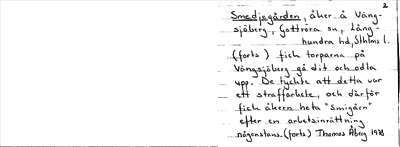 2
Smedjegården, åker å Väng-
sjöberg, Gottröra sn, Lång-
hundra hd, Sthlms l.
(forts) fick torparna på
Vängsjöberg gå dit och odla
upp. De tyckte att detta var
ett straffarbete, och därför
fick åkern heta "Smigårn"
efter en arbetsinrättning
någonstans. (forts) Thomas Åberg 1978